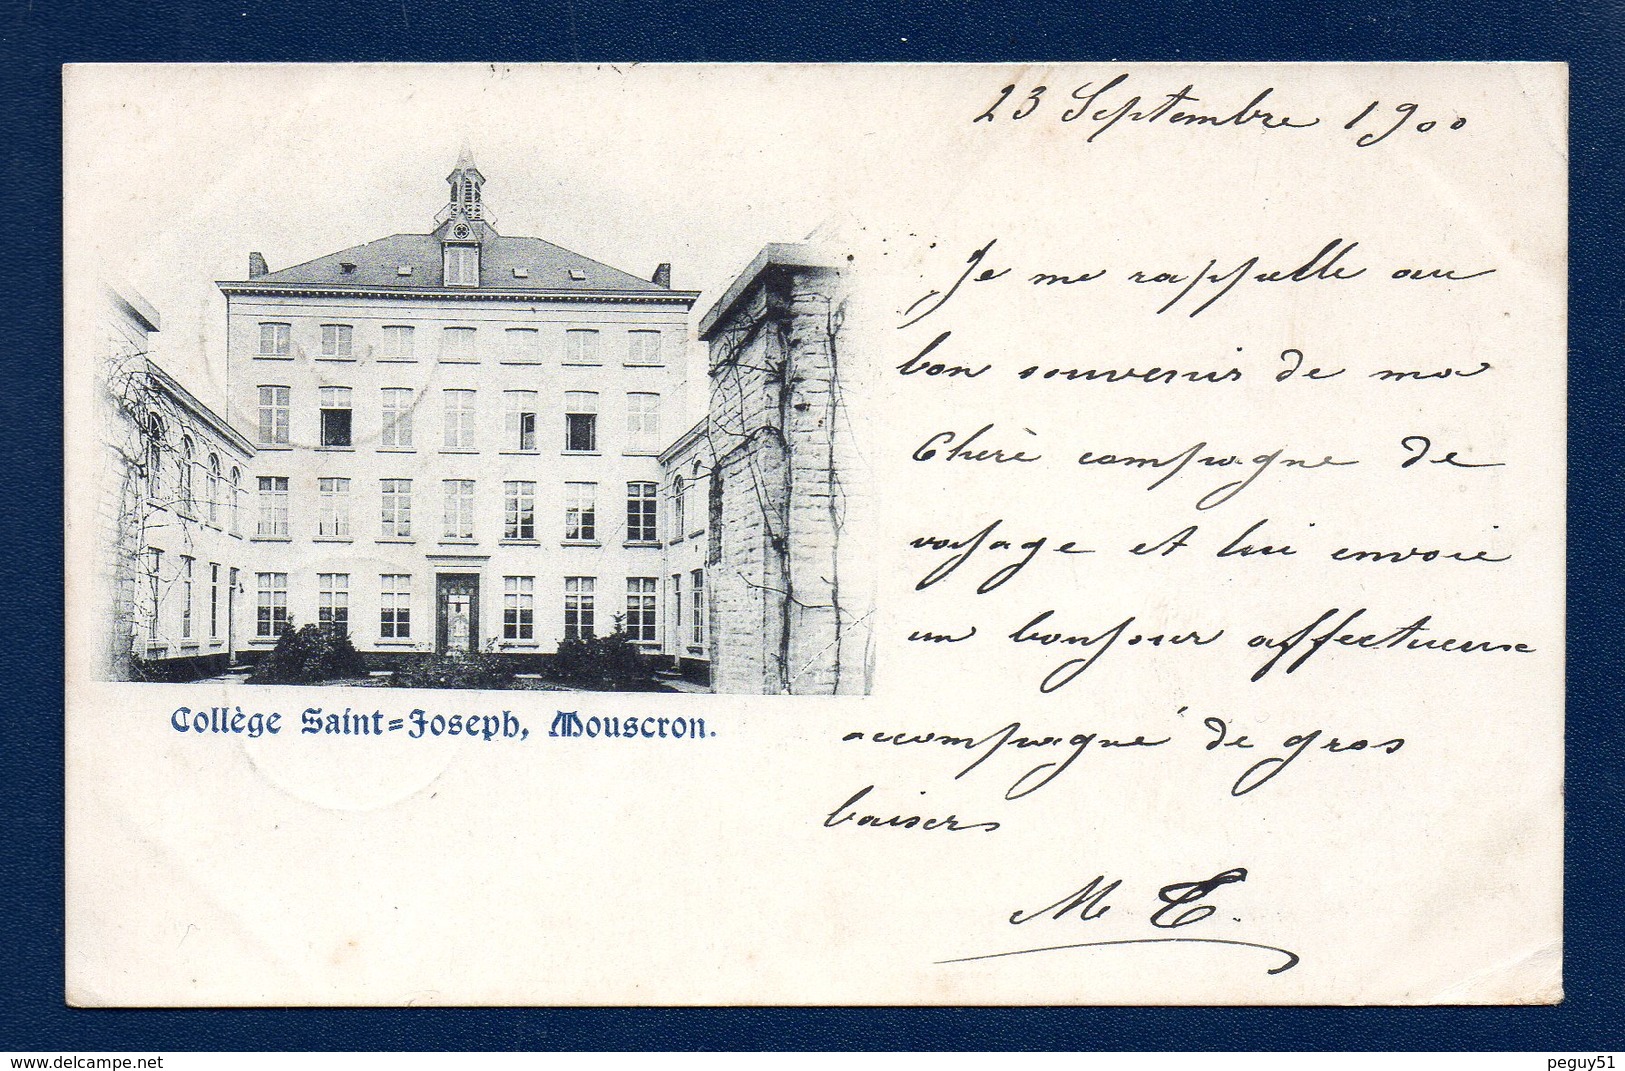 23 Septembre 1900
Je me rappelle au
bon souvenir de ma
Chère compagne de
voyage et lui envoie
un bonjour affectueux
accompagné de gros
baisers
M T.
Collège Saint=Joseph, Mouscron.
www.delcampe.net
peguy51